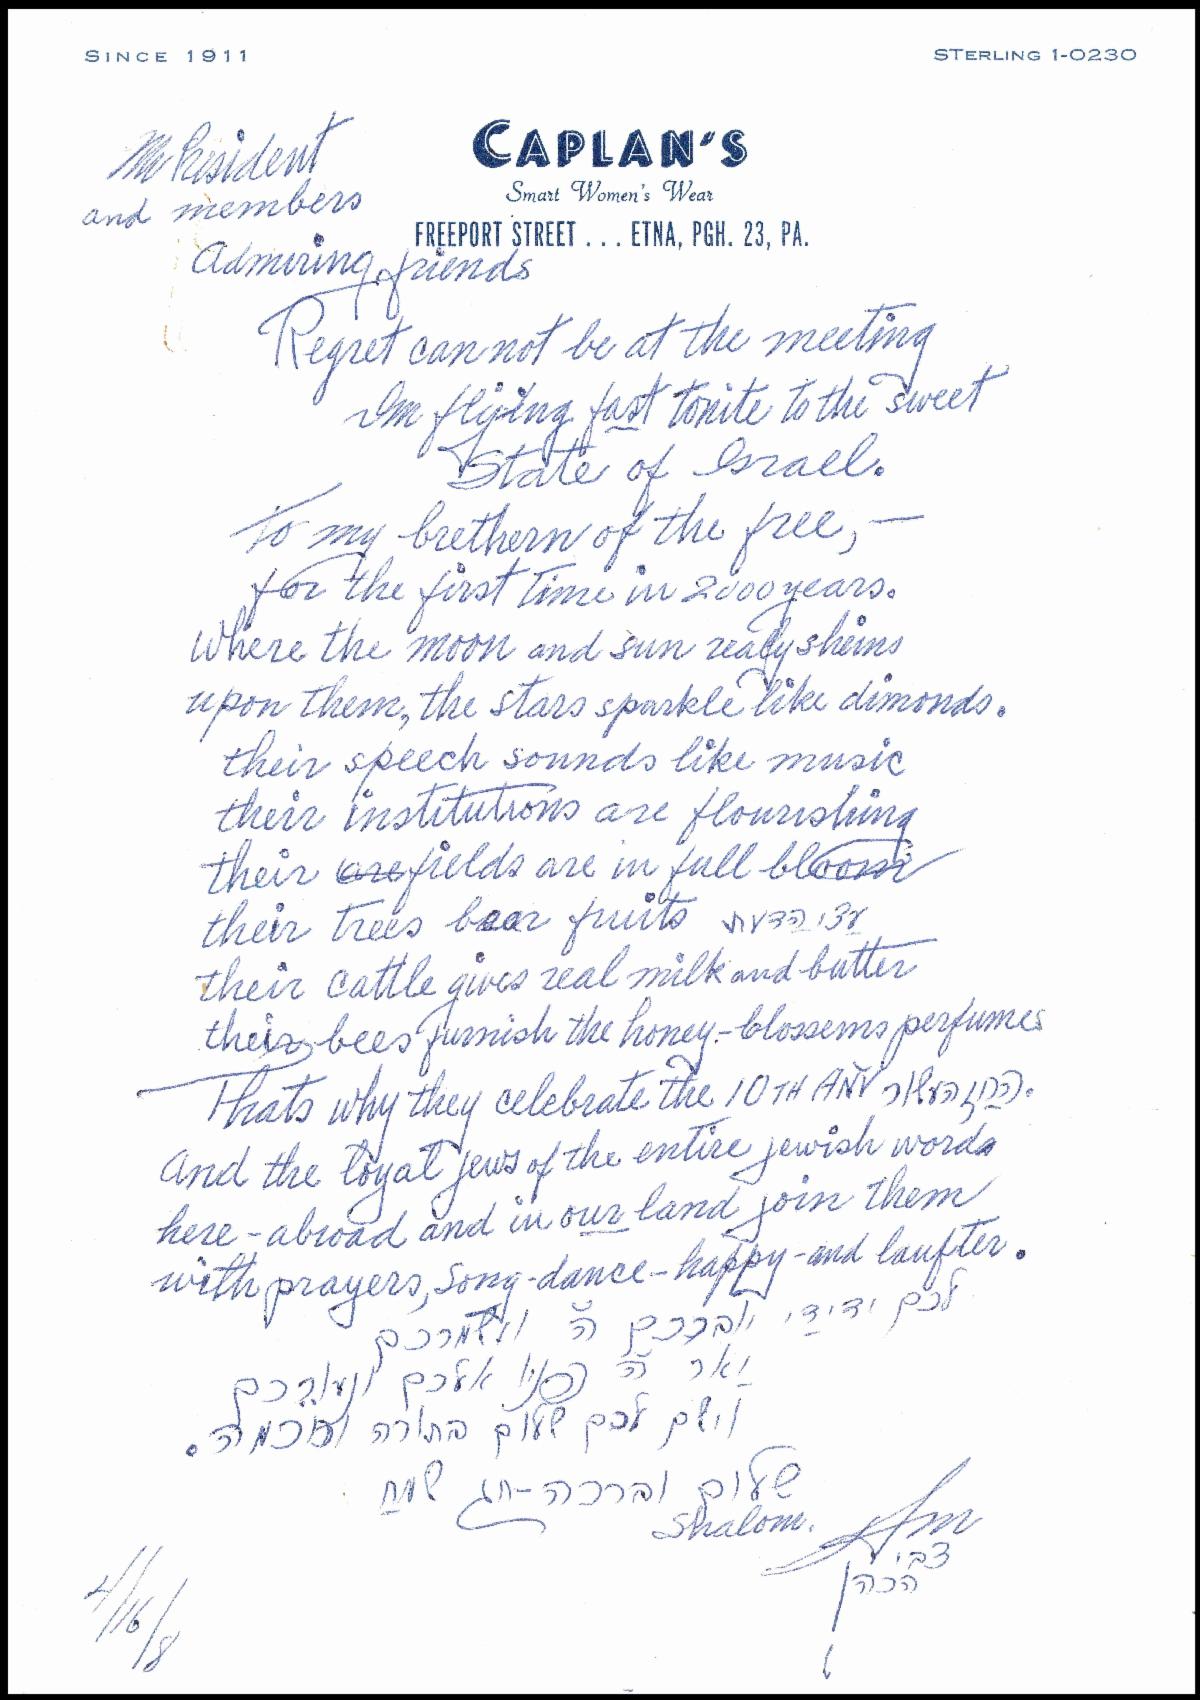 SINCE 1911
STERLING 1-0230
CAPLAN'S
Smart Women's Wear
FREEPORT STREET ... ETNA, PGH. 23, PA.
Mr President
and members
Admiring friends
Regret can not be at the meeting
Im flying fast tonite to the sweet
State of Israel.
To my brethern of the free, —
for the first time in 2000 years.
Where the moon and sun realy sheins
upon them, the stars sparkle like dimonds.
their speech sounds like music
their institutions are flourishing
their are fields are in full bloom
their trees bear fruits עצי הדעת
their cattle gives real milk and butter
their bees furnish the honey-blossems perfumes
Thats why they celebrate the 10TH ANV העשור
And the loyal jews of the entire jewish words
here - abroad and in our land join them
with prayers, song - dance - happy - and laufter.
לכם ידידי יברככם ה' וישמרכם
יאר ה' פניו אלכם
וישם לכם שלום בתורה
שלום וברכה - חג שמח
Shalom.
צבי
הכהן
4/16/8